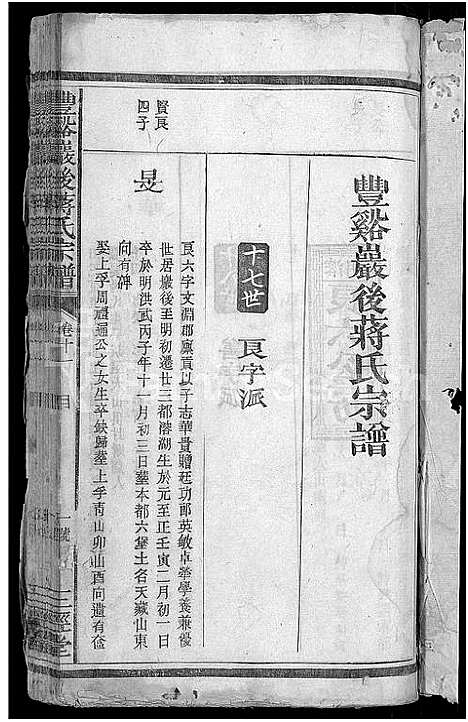 豐谿巖後蔣氏宗譜
十七世
艮字派
賢艮
四子
艮六字文淵郡廩貢以子志華貴贈廷功郎英敏卓犖學養兼優
世居巖後至明初遷廿三都潛湖生於元至正壬寅二月初一日
卒於明洪武丙子年十一月初三日墓本都六堡土名天藏山東
向有碑
娶上孚周禮通公之女生卒缺歸墓上孚靑山卯山酉向遺有僉
豐谿巖後蔣氏宗譜
卷十一
三徑堂